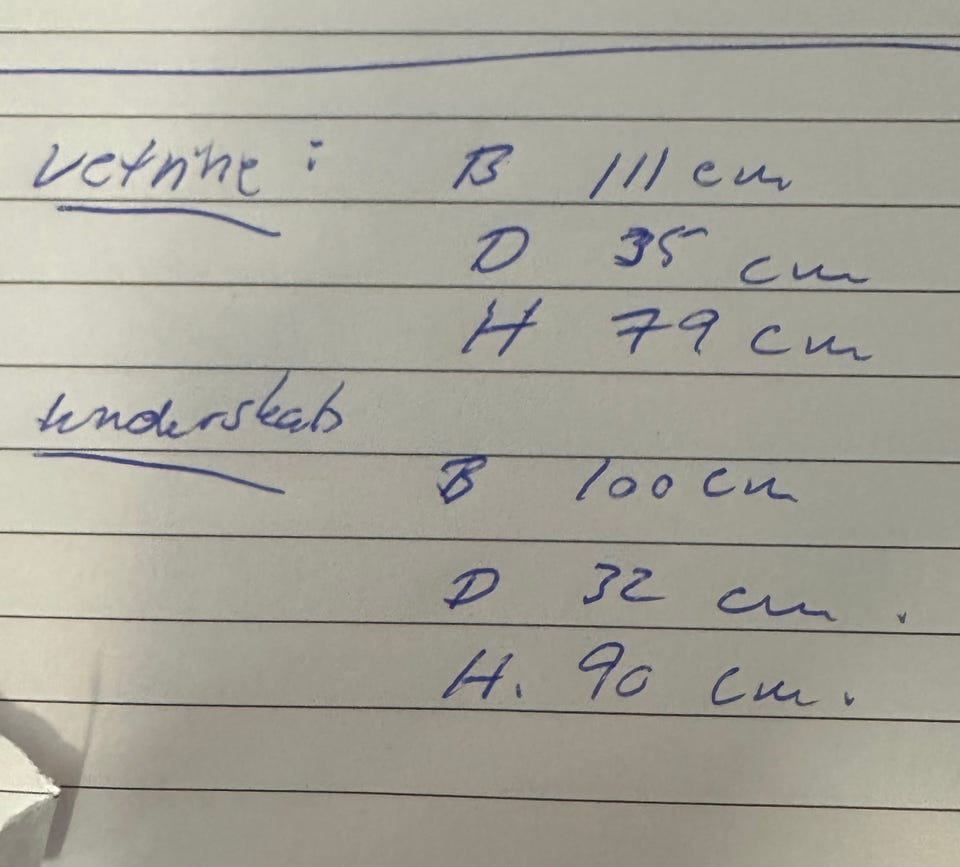 vetrine : B 111 cm
D 35 cm
H 79 cm
underskab
B 100 cm
D 32 cm.
H. 90 cm.